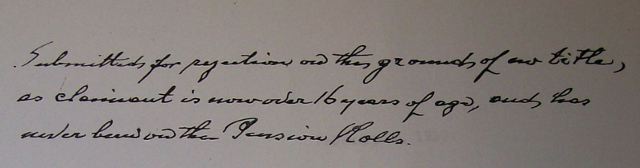 Submitted for rejection on the grounds of no title,
as claimant is now over 16 years of age, and has
never been on the Pension Rolls.